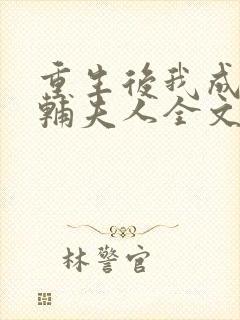 重生後我成
輔夫人全文
林警官